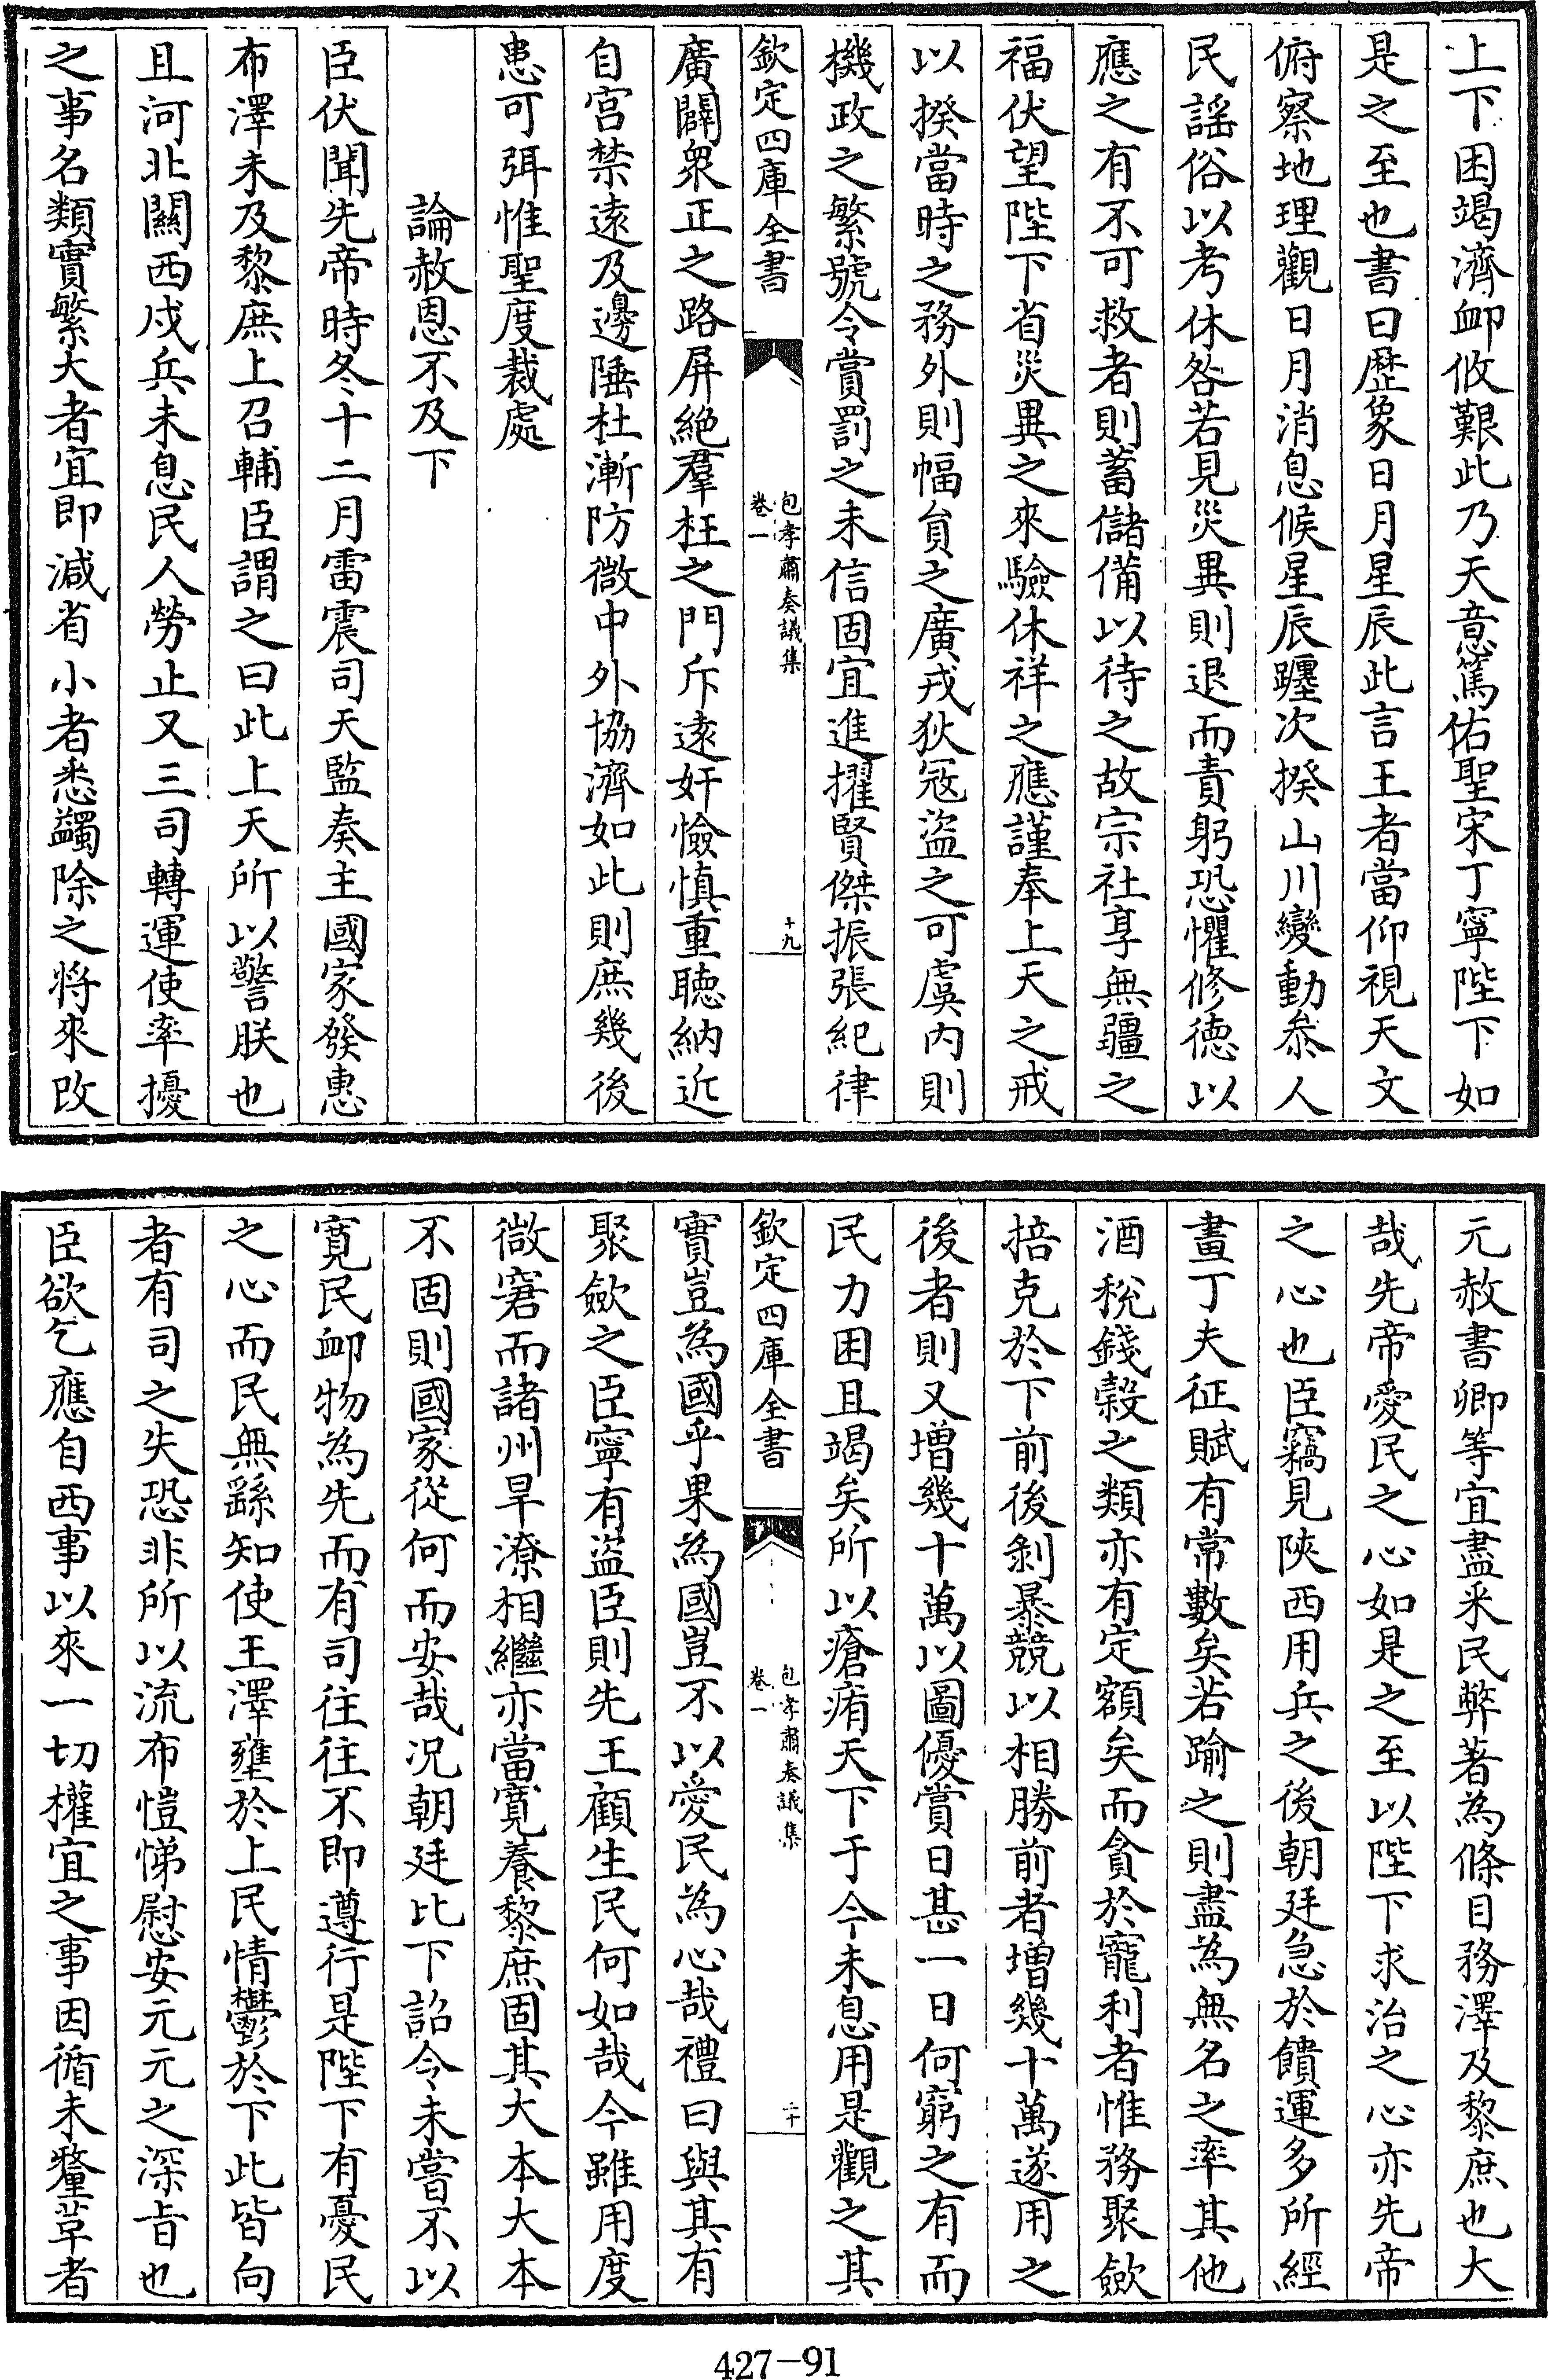 上下困竭濟卹攸艱此乃天意篤佑聖宋丁寧陛下如
是之至也書曰歴象日月星辰此言王者當仰視天文
俯察地理觀日月消息候星辰躔次揆山川變動叅人
民謡俗以考休咎若見災異則退而責躬恐懼修德以
應之有不可救者則蓄儲備以待之故宗社享無疆之
福伏望陛下省災異之來驗休祥之應謹奉上天之戒
以揆當時之務外則幅員之廣戎狄冦盜之可虞内則
機政之繁號令賞罰之未信固宜進擢賢傑振張紀律
欽定四庫全書
包孝肅奏議集
卷一
十九
廣闢衆正之路屏絶羣枉之門斥遠奸憸慎重聴納近
自宫禁遠及邊陲杜漸防微中外協濟如此則庶幾後
患可弭惟聖度裁處
論赦恩不及下
臣伏聞先帝時冬十二月雷震司天監奏主國家發惠
布澤未及黎庶上召輔臣謂之曰此上天所以警朕也
且河北關西戍兵未息民人勞止又三司轉運使率擾
之事名類實繁大者宜即減省小者悉蠲除之将來改
元赦書卿等宜盡采民弊著為條目務澤及黎庶也大
哉先帝愛民之心如是之至以陛下求治之心亦先帝
之心也臣竊見陜西用兵之後朝廷急於饋運多所經
畫丁夫征賦有常數矣若踰之則盡為無名之率其他
酒稅錢榖之類亦有定額矣而貪於寵利者惟務聚歛
掊克於下前後剝暴競以相勝前者增幾十萬遂用之
後者則又增幾十萬以圖優賞日甚一日何窮之有而
民力困且竭矣所以瘡痏天下于今未息用是觀之其
欽定四庫全書
包孝肅奏議集
卷一
二十
實豈為國乎果為國豈不以愛民為心哉禮曰與其有
聚歛之臣寧有盜臣則先王顧生民何如哉今雖用度
微窘而諸州旱潦相繼亦當寛養黎庶固其大本大本
不固則國家從何而安哉况朝廷比下詔令未嘗不以
寛民卹物為先而有司往往不即遵行是陛下有憂民
之心而民無繇知使王澤壅於上民情鬱於下此皆向
者有司之失恐非所以流布愷悌慰安元元之深旨也
臣欲乞應自西事以來一切權宜之事因循未釐革者
427-91